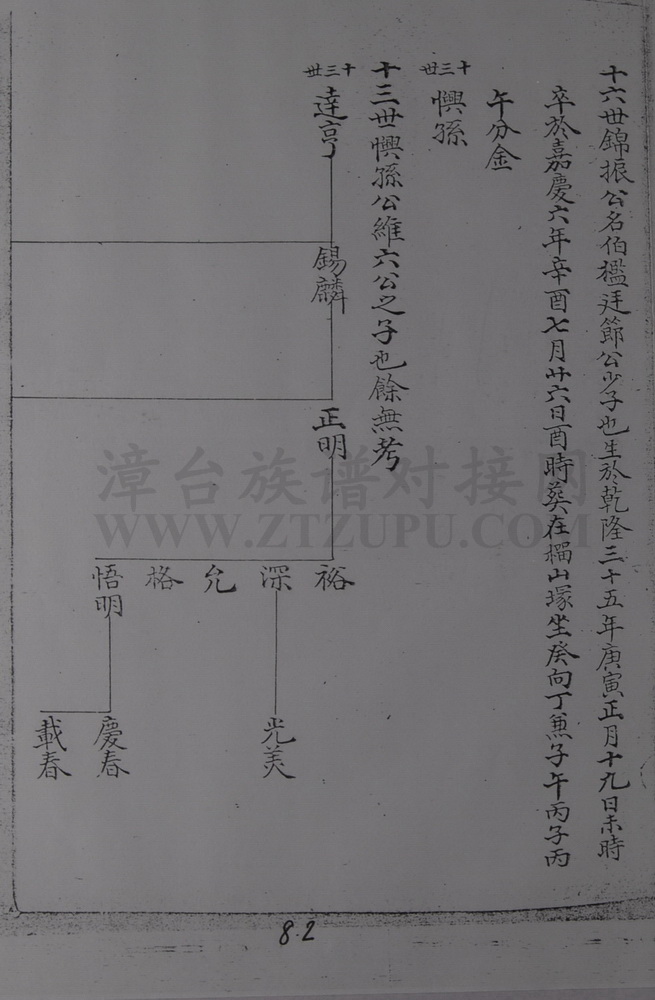 十六世錦振公名伯檻廷節公少子也生於乾隆三十五年庚寅正月十九日未時
卒於嘉慶六年辛酉七月廿六日酉時葬在榴山塚坐癸向丁兼子午丙子丙
午分金
十三世
懊孫
十三世懊孫公維六公之子也餘無考
十三世
達亨
錫麟
正明
裕
深
允
格
悟明
光美
慶春
載春
漳台族谱对接网
WWW.ZTZUPU.COM
8.2